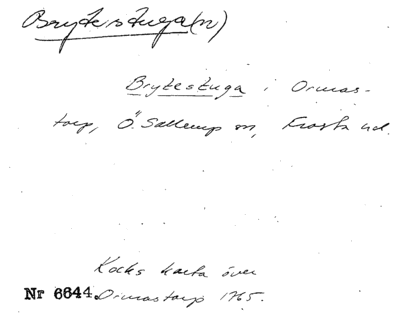 Brytestuga(n)
Brytestuga i Ormas-
torp, Ö. Sallerup sn, Frosta hd.
Kocks karta över
Nr 6644 Ormastorp 1765.